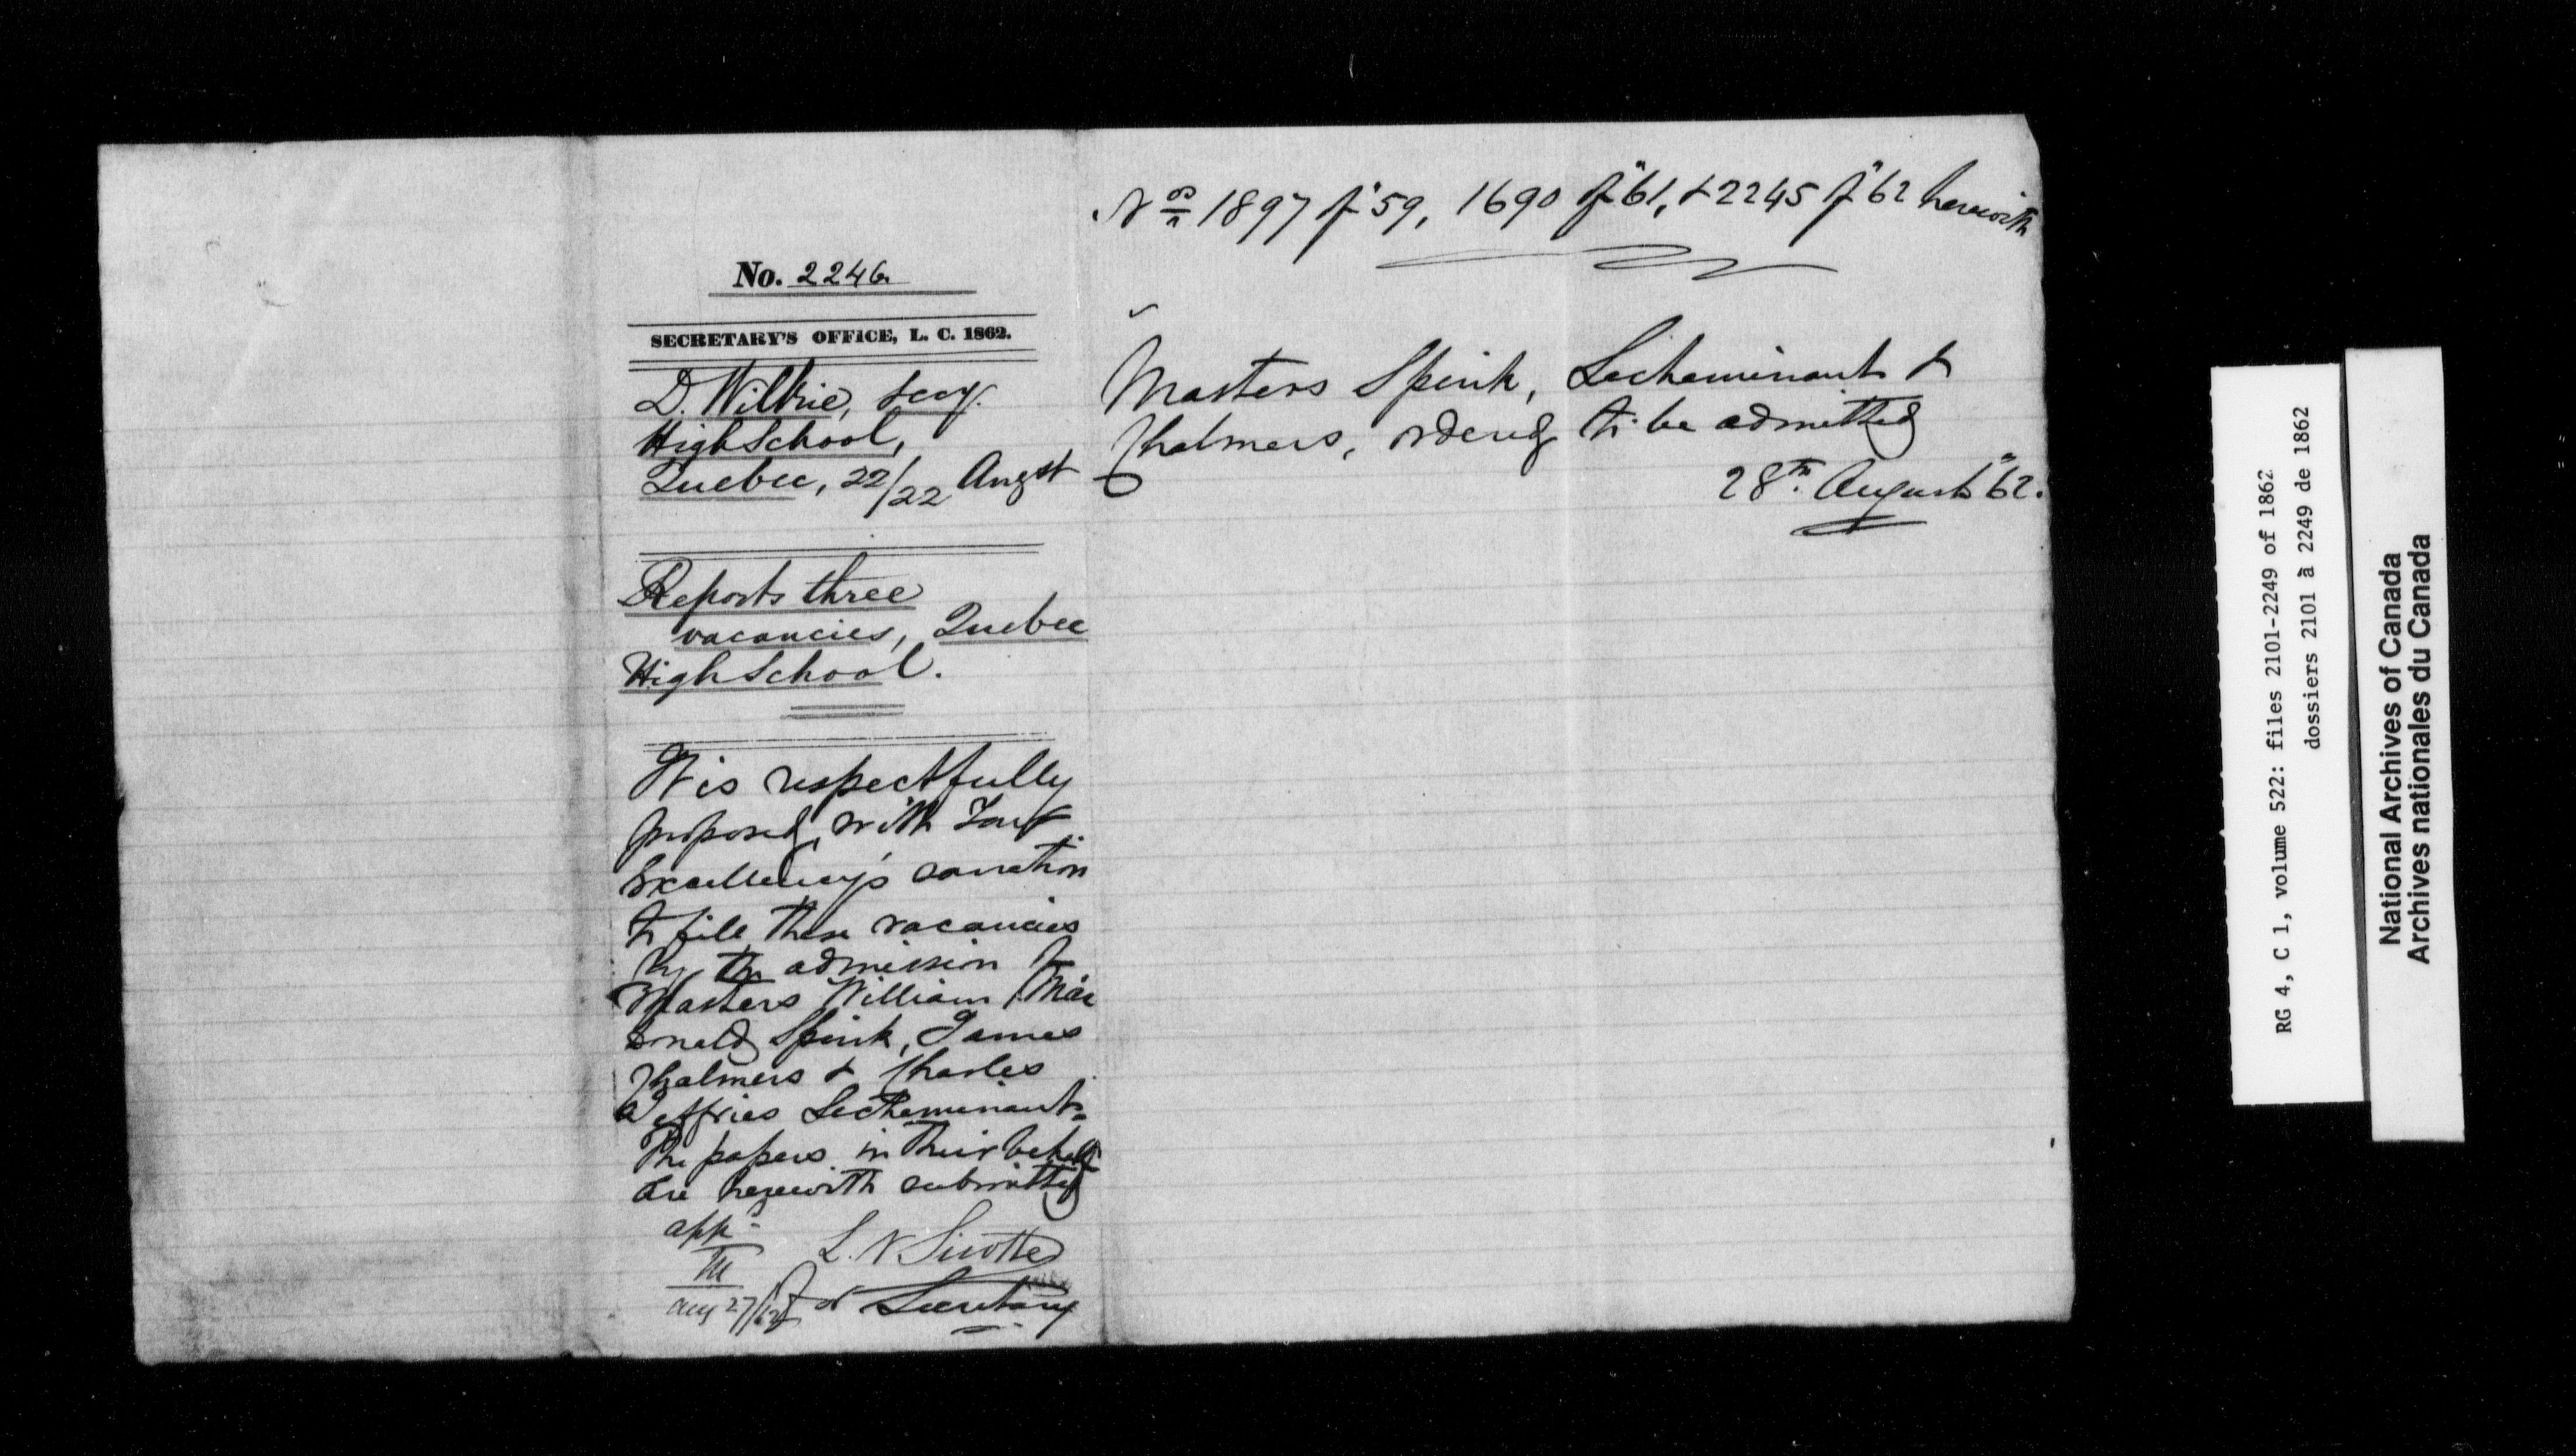 No. 2246
SECRETARY'S OFFICE, L. C. 1862.
D. Wilkie, Secy.
High School,
Quebec, 22/22 Augst
Reports three
vacancies, Quebec
High School.
It is respectfully
proposed, with Your
Excellency's sanction
to fill these vacancies
by the admission of
Masters William Mac
donald Spink, James
Chalmers & Charles
Jeffries Lecheminant.
The papers in their behalf
are herewith submitted
app
L. V. Sicotte
Aug 27/62
Secretary
Nos 1897 of "59, 1690 of "61, & 2245 of "62 herewith
Masters Spink, Lecheminant &
Chalmers, ordered to be admitted
28th. August "62.
RG 4, C 1, volume 522: files 2101-2249 of 1862
dossiers 2101 à 2249 de 1862
National Archives of Canada
Archives nationales du Canada